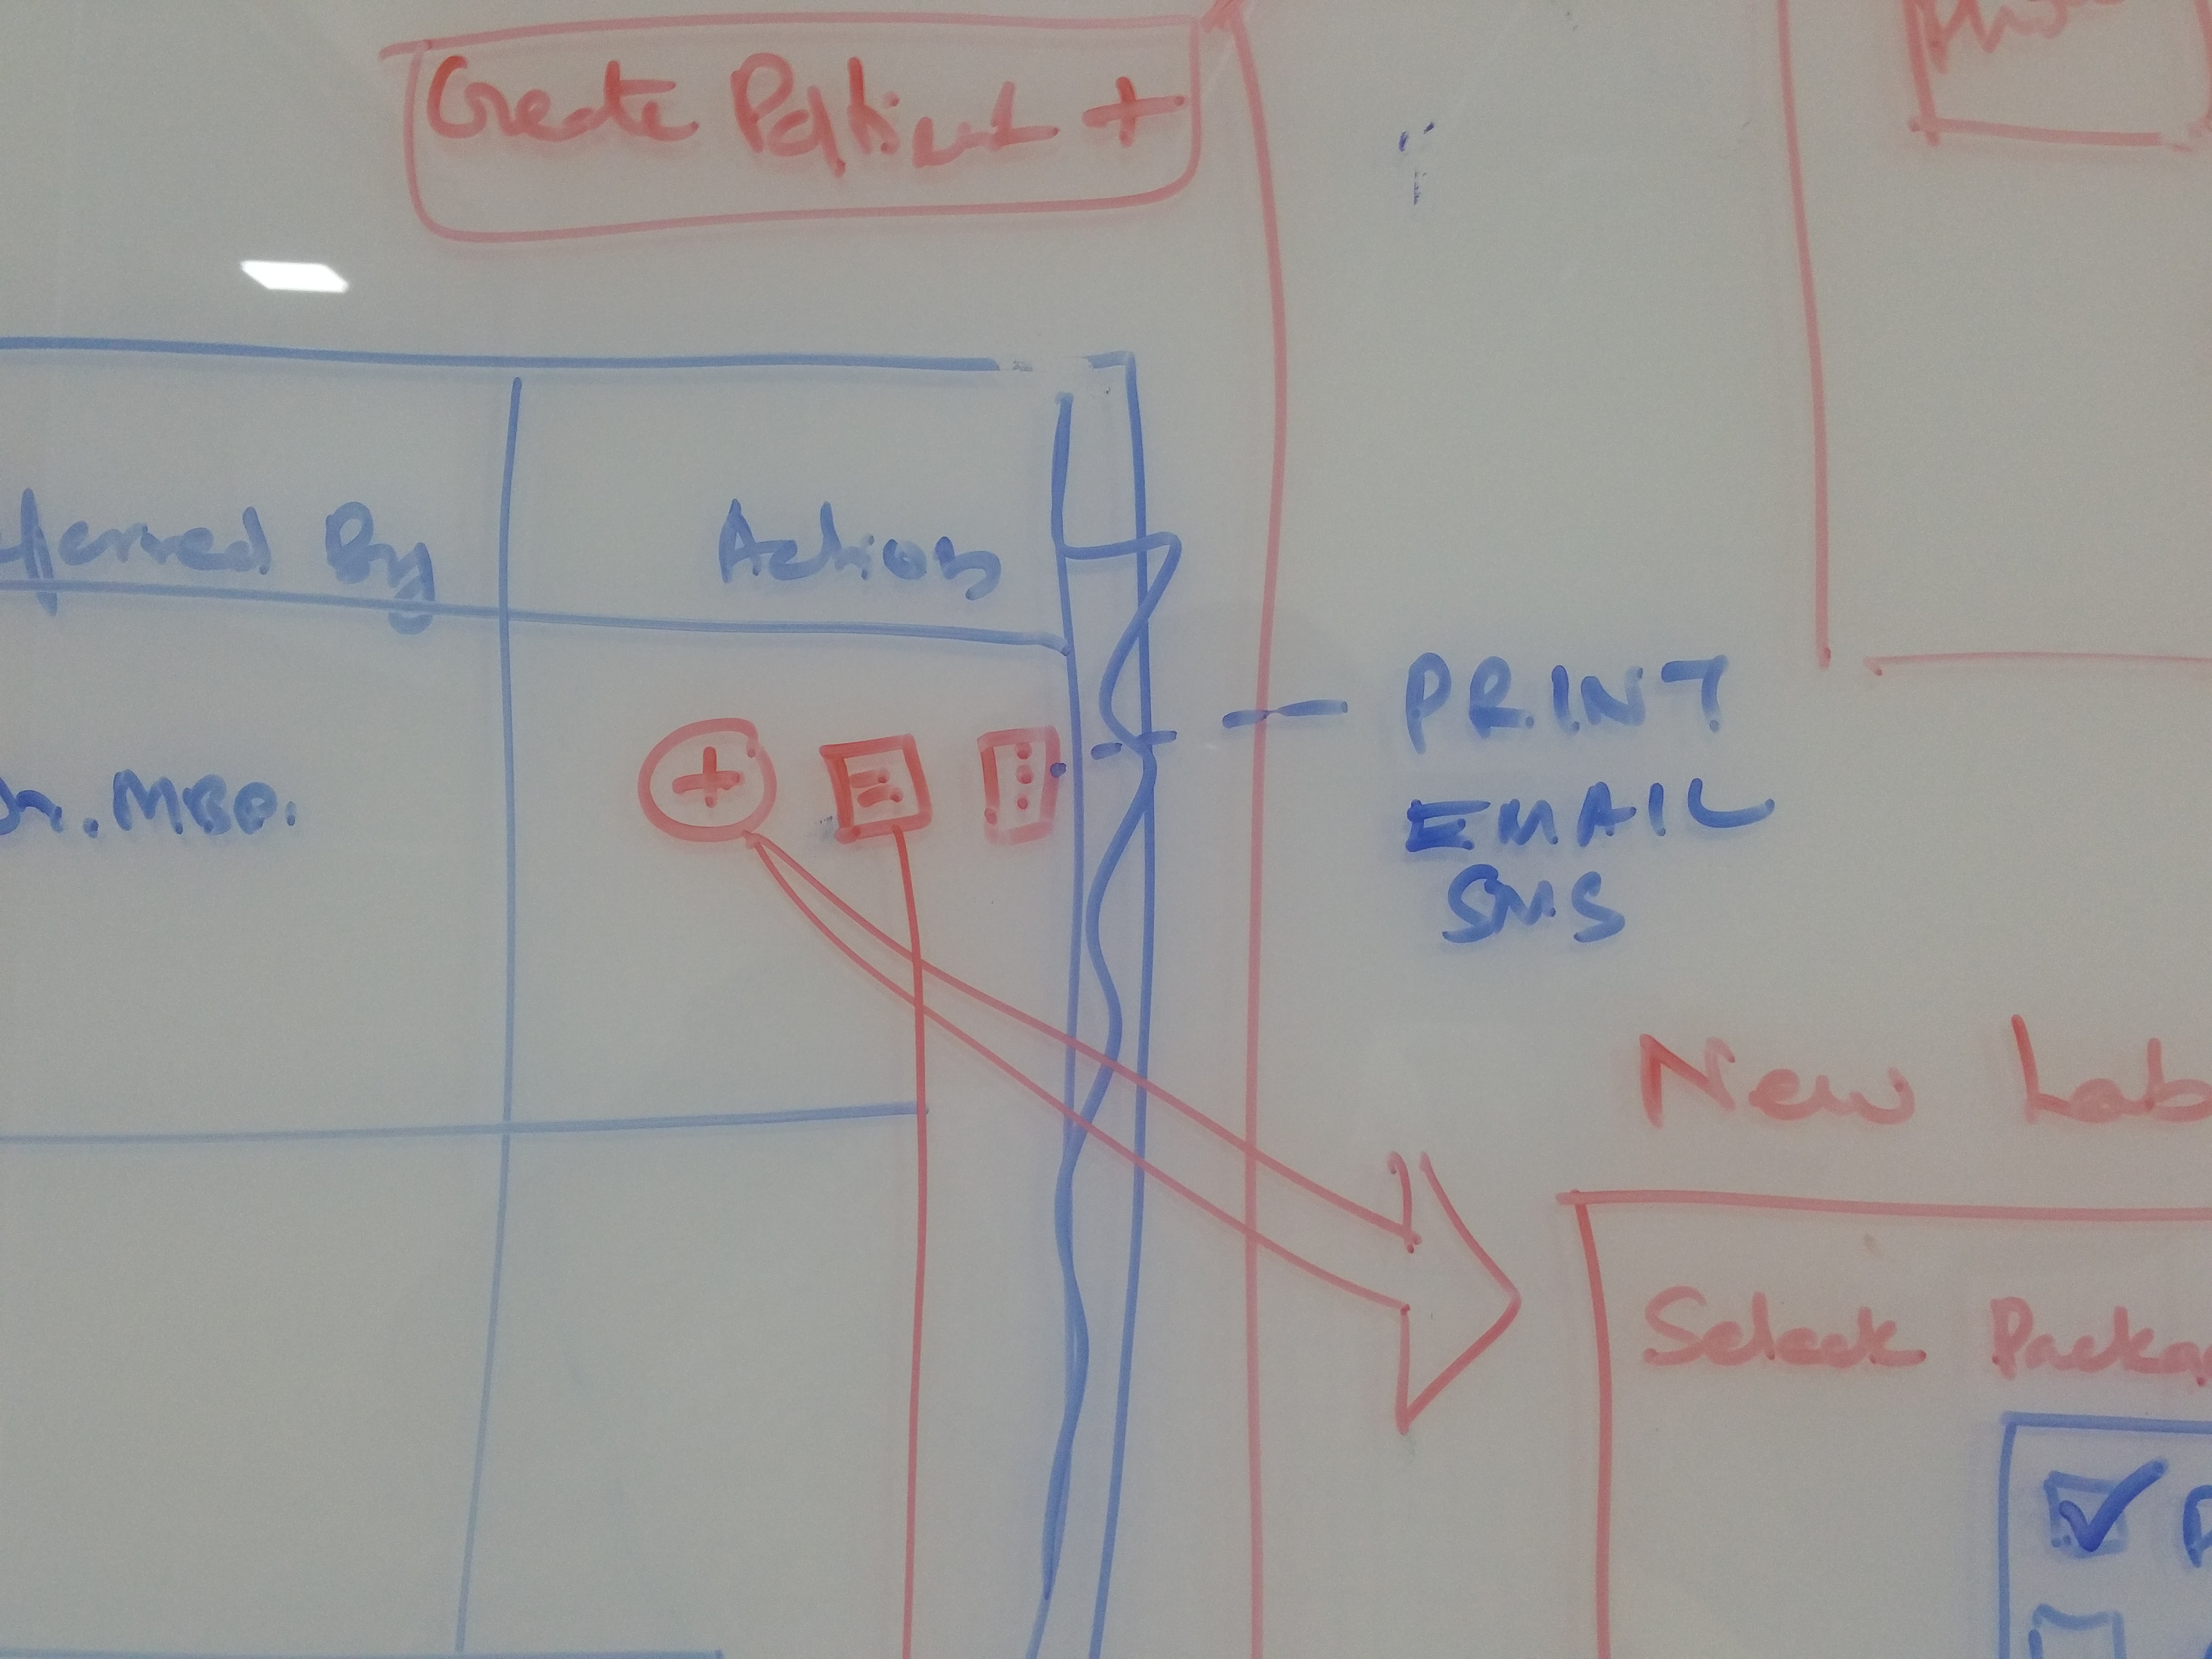 Create Patient +
eferred By
Actions
Dr. MBO.
PRINT
EMAIL
SMS
New Lab
Select Packag